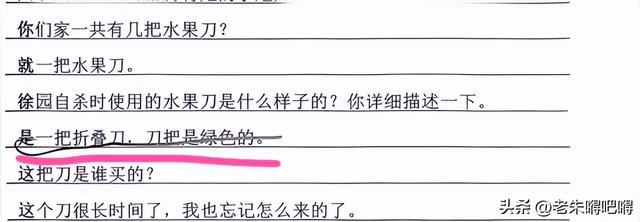 你们家一共有几把水果刀？
就一把水果刀。
徐园自杀时使用的水果刀是什么样子的？你详细描述一下。
是一把折叠刀，刀把是绿色的。
这把刀是谁买的？
这个刀很长时间了，我也忘记怎么来的了。
头条 @老朱嘚吧嘚